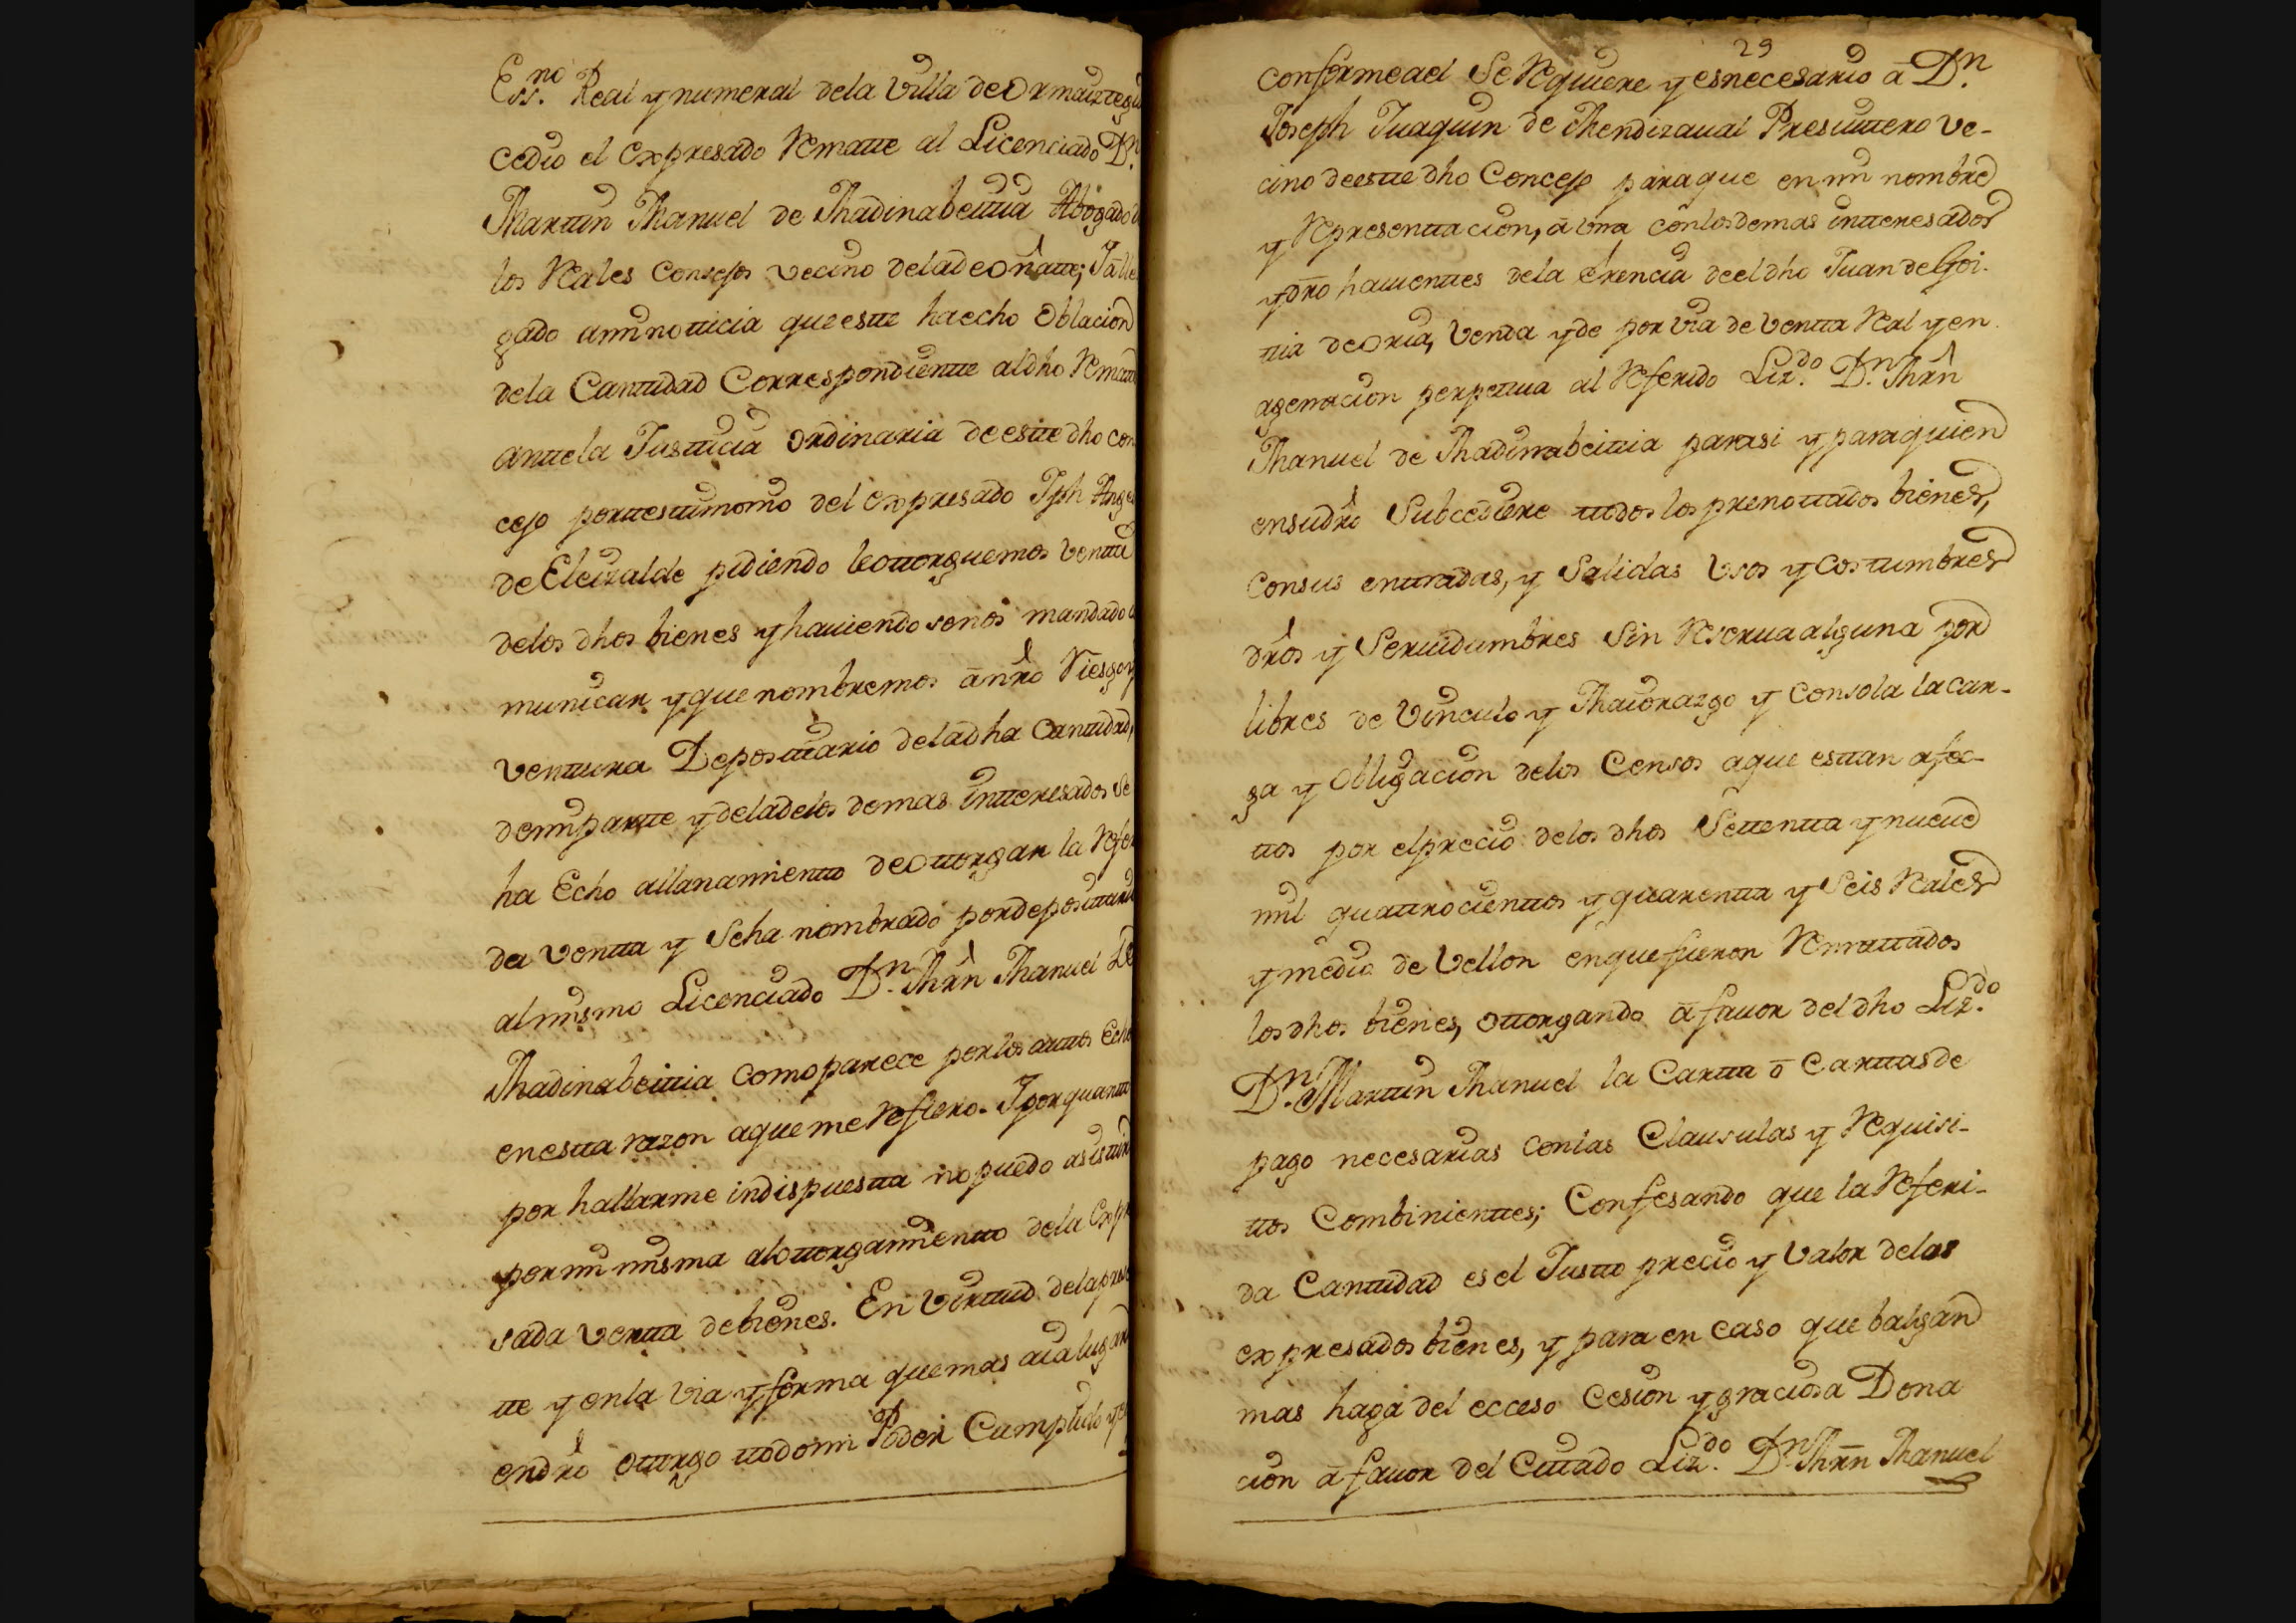 Ess.no Real y numeral dela Villa de Ormaiztegui
cedio el expresado Rematte al Licenciado Dn.
Marttin Manuel de Madinabeittia Abogado d
los Reales Consejos vecino dela de Oñatte; Ya lle
gado a mi notticia que estte ha echo Oblacion
dela Canttidad Correspondientte al dho Rematt
antte la Justticia Ordinaria de estte dho con
cejo por ttesttimonio del expresado Jph Ange
de Eleizalde pidiendo le ottorguemos Ventta
delos dhos bienes y haviendosenos mandado c
municar y que nombremos a nro Riesgo y
Venttura Deposittario dela dha Canttidad,
de mi partte y dela delos demas intteresados Se
ha Echo allanamientto de Ottorgar la Refer
da Ventta y Se ha nombrado por deposittario
al mismo Licenciado Dn. Mrn Manuel De
Madinabeittia como parece por los auttos Echo
en estta razon a que me Refiero. Y por quantto
por hallarme indispuestta no puedo asisttir
por mi misma al Ottorgamientto dela Expre
sada ventta de bienes. En Virttud dela pres
tte y en la via y forma que mas aia lugar
en dro Ottorgo ttodo mi Poder Cumplido y
29
conforme a el Se Requiere y es necesario a Dn.
Joseph Juaquin de Mendizaval Presvittero ve-
cino de estte dho Concejo para que en mi nombre
y Representtacion, a una con los demas intteresados
y dro havienttes dela Erencia de el dho Juan de Goi-
ttia de Oria, Venda y de por via de Ventta Real y en
agenacion perpettua al Referido Liz.do Dn. Mrn
Manuel de Madinabeittia para si y para quien
en su dro Subcediere ttodos los prenottados bienes,
Con sus enttradas, y Salidas Usos y Costtumbres
dros y Servidumbres Sin Reserva alguna por
libres de Vinculo y Maiorazgo y Con sola la car-
ga y Obligacion delos Censos a que esttan afec-
ttos por el precio delos dhos Settentta y nueve
mil quattrocienttos y quarentta y Seis Reales
y medio de Vellon en que fueron Remattados
los dhos bienes, Ottorgando a favor del dho Liz.do
Dn. Marttin Manuel la Cartta o Carttas de
pago necesarias con las Clausulas y Requisi-
ttos Combinienttes; Confesando que la Referi-
da Canttidad es el Justto precio y Valor delos
expresados bienes, y para en caso que balgan
mas haga del ecceso Cesion y graciosa Dona
cion a favor del Cittado Liz.do Dn. Mrn Manuel